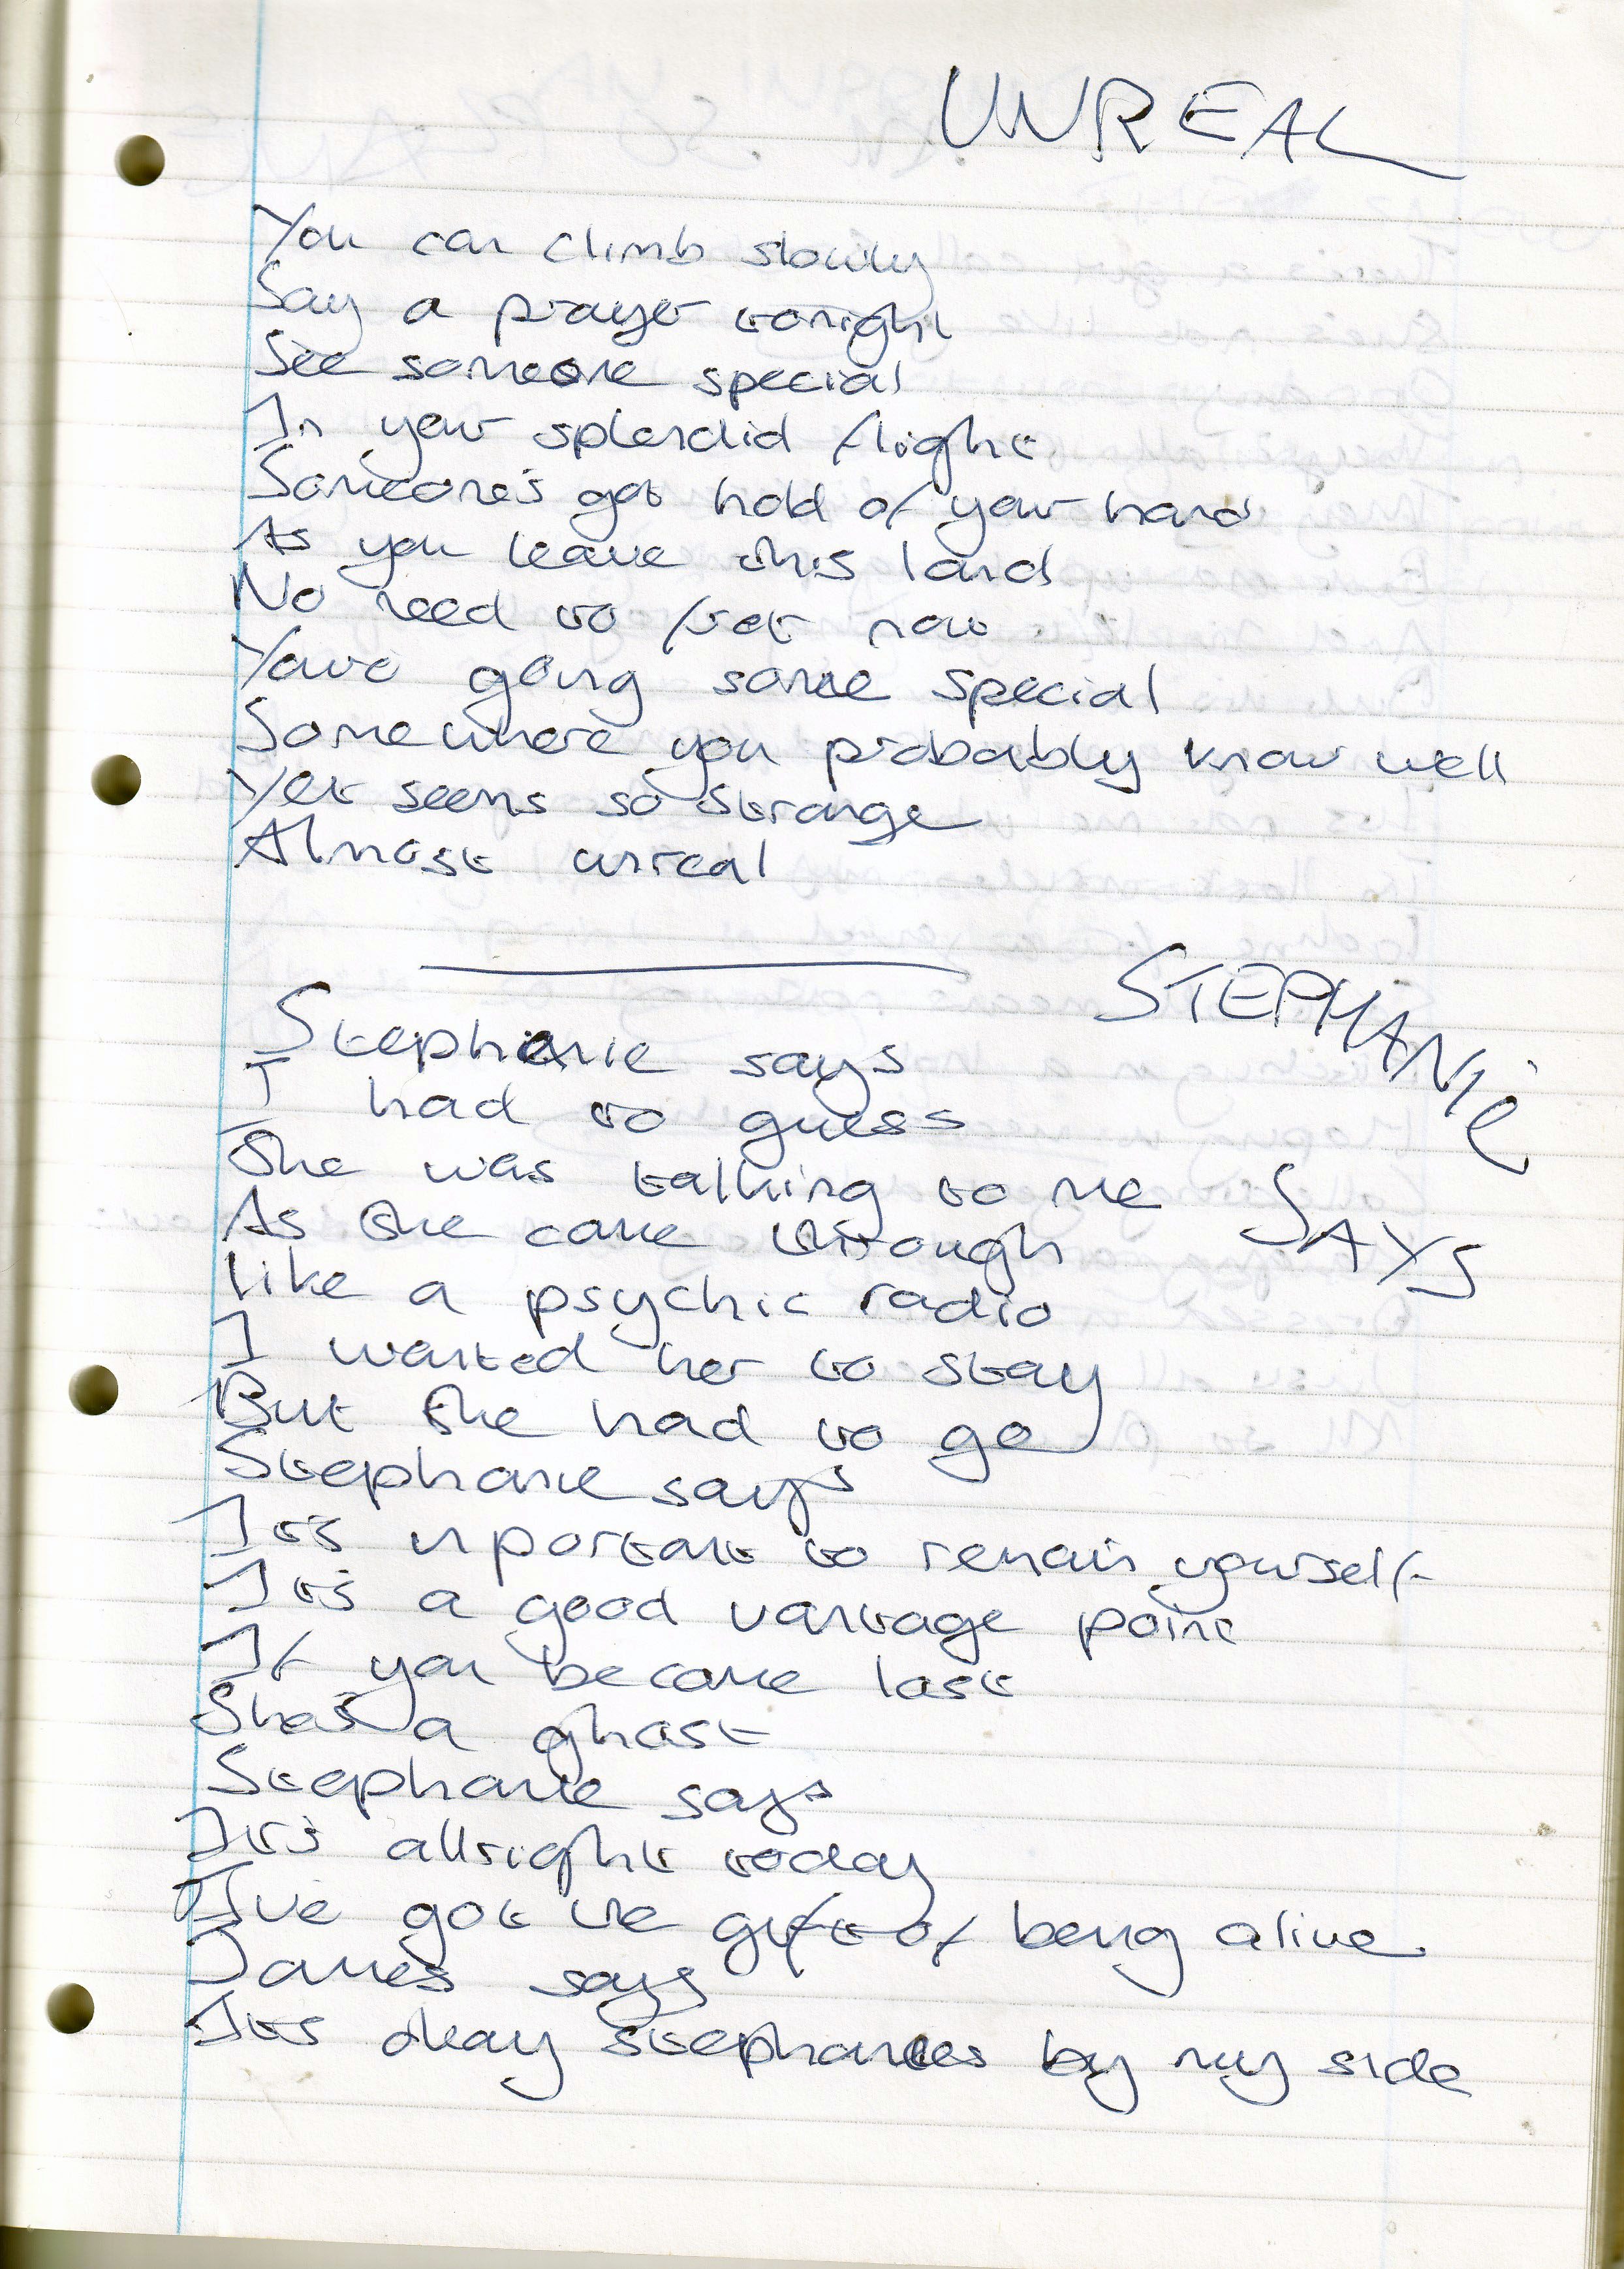 UNREAL
You can climb slowly
Say a prayer tonight
See someone special
In your splendid flight
Someone's got hold of your hand
As you leave this land
No need to fret now
Your going some special
Somewhere you probably know well
Yet seems so strange
Almost unreal
STEPHANIE
SAYS
Stephanie says
I had to guess
She was talking to me
As she came through
like a psychic radio
I wanted her to stay
But she had to go
Stephanie says
Its important to remain yourself
It's a good vantage point
If you become lost
She's a ghost
Stephanie says
It's allright today
I've got the gift of being alive
James says
Its okay stephanies by my side